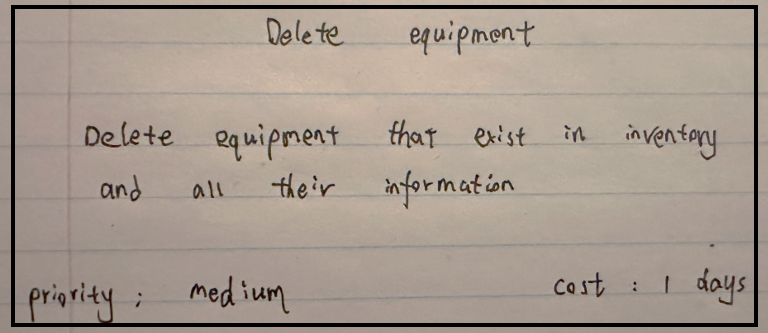 Delete equipment
Delete equipment that exist in inventory
and all their information
priority ; medium
cost : 1 days